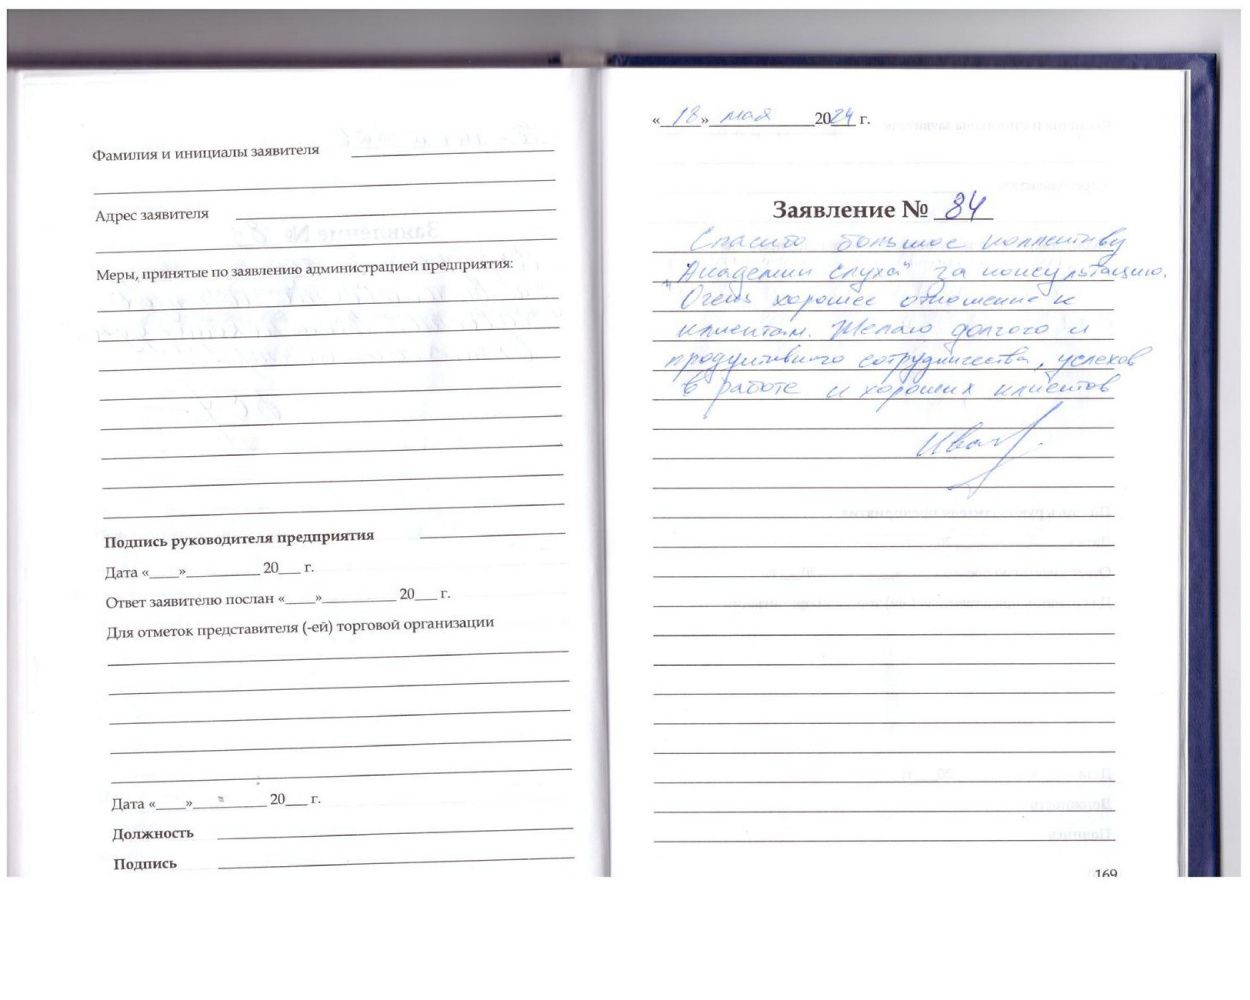 Фамилия и инициалы заявителя
Адрес заявителя
Меры, принятые по заявлению администрацией предприятия:
Подпись руководителя предприятия
Дата «____»__________ 20___ г.
Ответ заявителю послан «____»__________ 20___ г.
Для отметок представителя (-ей) торговой организации
Дата «____»__________ 20___ г.
Должность
Подпись
« 18 » мая 2024 г.
Заявление № 84
Спасибо большое коллективу
"Академии слуха" за консультацию.
Очень хорошее отношение к
клиентам. Желаю долгого и
продуктивного сотрудничества, успехов
в работе и хороших клиентов
169